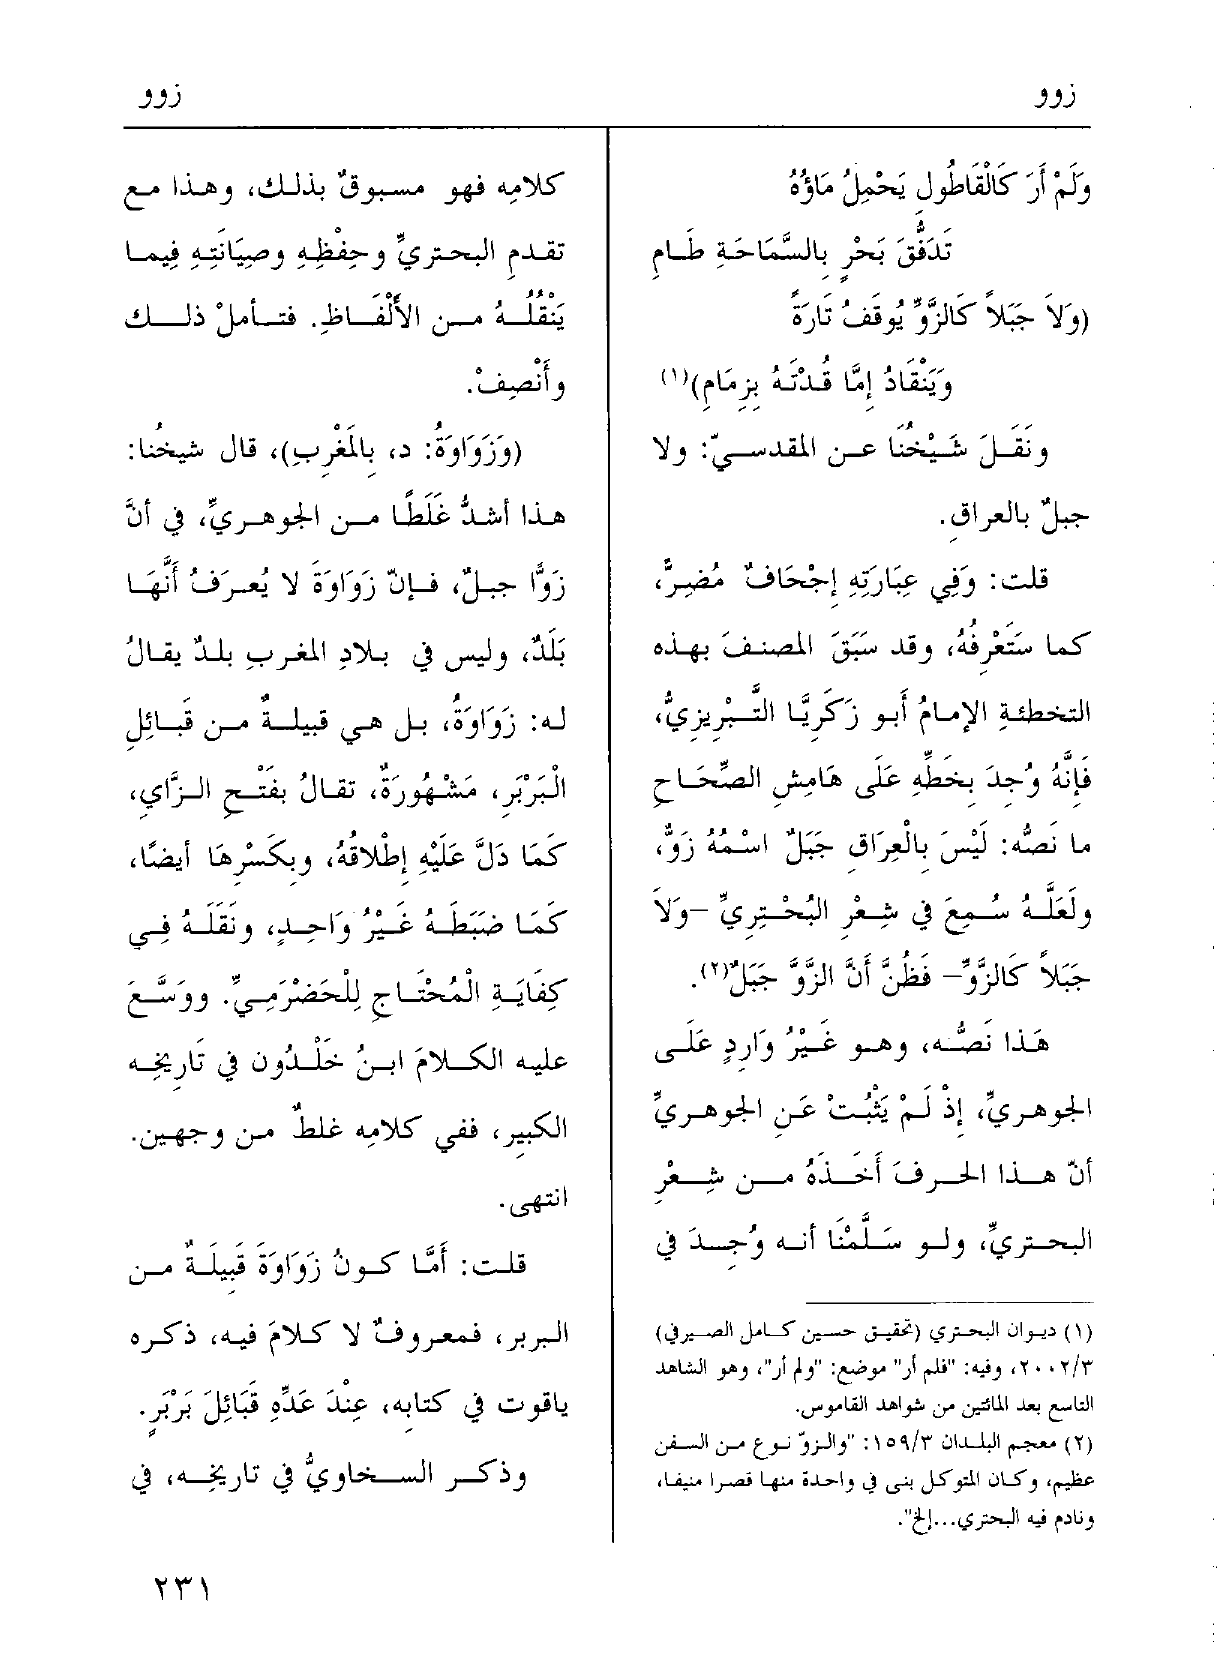 زوو
زوو
وَلَمْ أَرَ كَالْقَاطُولِ يَحْمِلُ مَاؤُهُ
تَدَفُّقَ بَحْرٍ بِالسَّمَاحَةِ طَامِ
(وَلاَ جَبَلاً كَالزَّوِّ يُوقَفُ تَارَةً
وَيَنْقَادُ إِمَّا قُدْتَهُ بِزِمَامِ)(١)
ونَقَلَ شَيْخُنَا عن المقدسيّ: ولا
جبلٌ بالعراقِ.
قلت: وَفِي عِبَارَتِهِ إِجْحَافٌ مُضِرٌّ،
كما سَتَعْرِفُهُ، وقد سَبَقَ المصنفَ بهذه
التخطئةِ الإمامُ أَبو زَكَرِيَّا التَّبْرِيزِيُّ،
فَإِنَّهُ وُجِدَ بِخَطِّهِ عَلَى هَامِشِ الصِّحَاحِ
ما نَصُّه: لَيْسَ بِالْعِرَاقِ جَبَلٌ اسْمُهُ زَوٌّ،
ولَعَلَّهُ سُمِعَ في شِعْرِ البُحْتِرِيِّ –وَلاَ
جَبَلاً كَالزَّوِّ– فَظُنَّ أَنَّ الزَّوَّ جَبَلٌ(٢).
هَذا نَصُّه، وهو غَيْرُ وَارِدٍ عَلَى
الجوهريِّ، إِذْ لَمْ يَثْبُت عَنِ الجوهريِّ
أنّ هذا الحرفَ أَخَذَهُ من شِعْرِ
البحتريِّ، ولو سَلَّمْنَا أنه وُجِدَ في
(١) ديوان البحتري (تحقيق حسين كامل الصيرفي)
٢٠٠٢/٣، وفيه: "فلم أر" موضع: "ولم أر"، وهو الشاهد
التاسع بعد المائتين من شواهد القاموس.
(٢) معجم البلدان ١٥٩/٣: "والزوّ نوع من السفن
عظيم، وكان المتوكل بنى في واحدة منها قصرا منيفا،
ونادم فيه البحتري...إلخ".
كلامِه فهو مسبوقٌ بذلك، وهذا مع
تقدم البحتريِّ وحِفْظِهِ وصِيَانَتِهِ فِيما
يَنْقُلُهُ من الأَلْفَاظِ. فتأملْ ذلك
وأَنْصِفْ.
(وَزَوَاوَةُ: د، بِالمَغْرِبِ)، قال شيخُنا:
هذا أشدُّ غَلَطًا من الجوهريِّ، في أنَّ
زَوًّا جبلٌ، فإنّ زَوَاوَةَ لا يُعرَفُ أَنَّهَا
بَلَدٌ، وليس في بلادِ المغربِ بلدٌ يقالُ
له: زَوَاوَةُ، بل هي قبيلةٌ من قَبائلِ
الْبَرْبَرِ، مَشْهُورَةٌ، تقالُ بفَتْحِ الزَّايِ،
كَمَا دَلَّ عَلَيْهِ إِطْلاقُهُ، وبِكَسْرِهَا أيضًا،
كَمَا ضَبَطَهُ غَيْرُ وَاحِدٍ، ونَقَلَهُ فِي
كِفَايَةِ الْمُحْتَاجِ لِلْحَضْرَمِيِّ. ووَسَّعَ
عليه الكلامَ ابنُ خَلْدُون في تَارِيخِه
الكبيرِ، ففي كلامِه غلطٌ من وجهين.
انتهى.
قلت: أَمَّا كونُ زَوَاوَةَ قَبِيلَةٌ من
البربر، فمعروفٌ لا كلامَ فيه، ذكره
ياقوت في كتابِه، عِنْدَ عَدِّهِ قَبَائِلَ بَرْبَرٍ.
وذكر السخاويُّ في تاريخِه، في
٢٣١